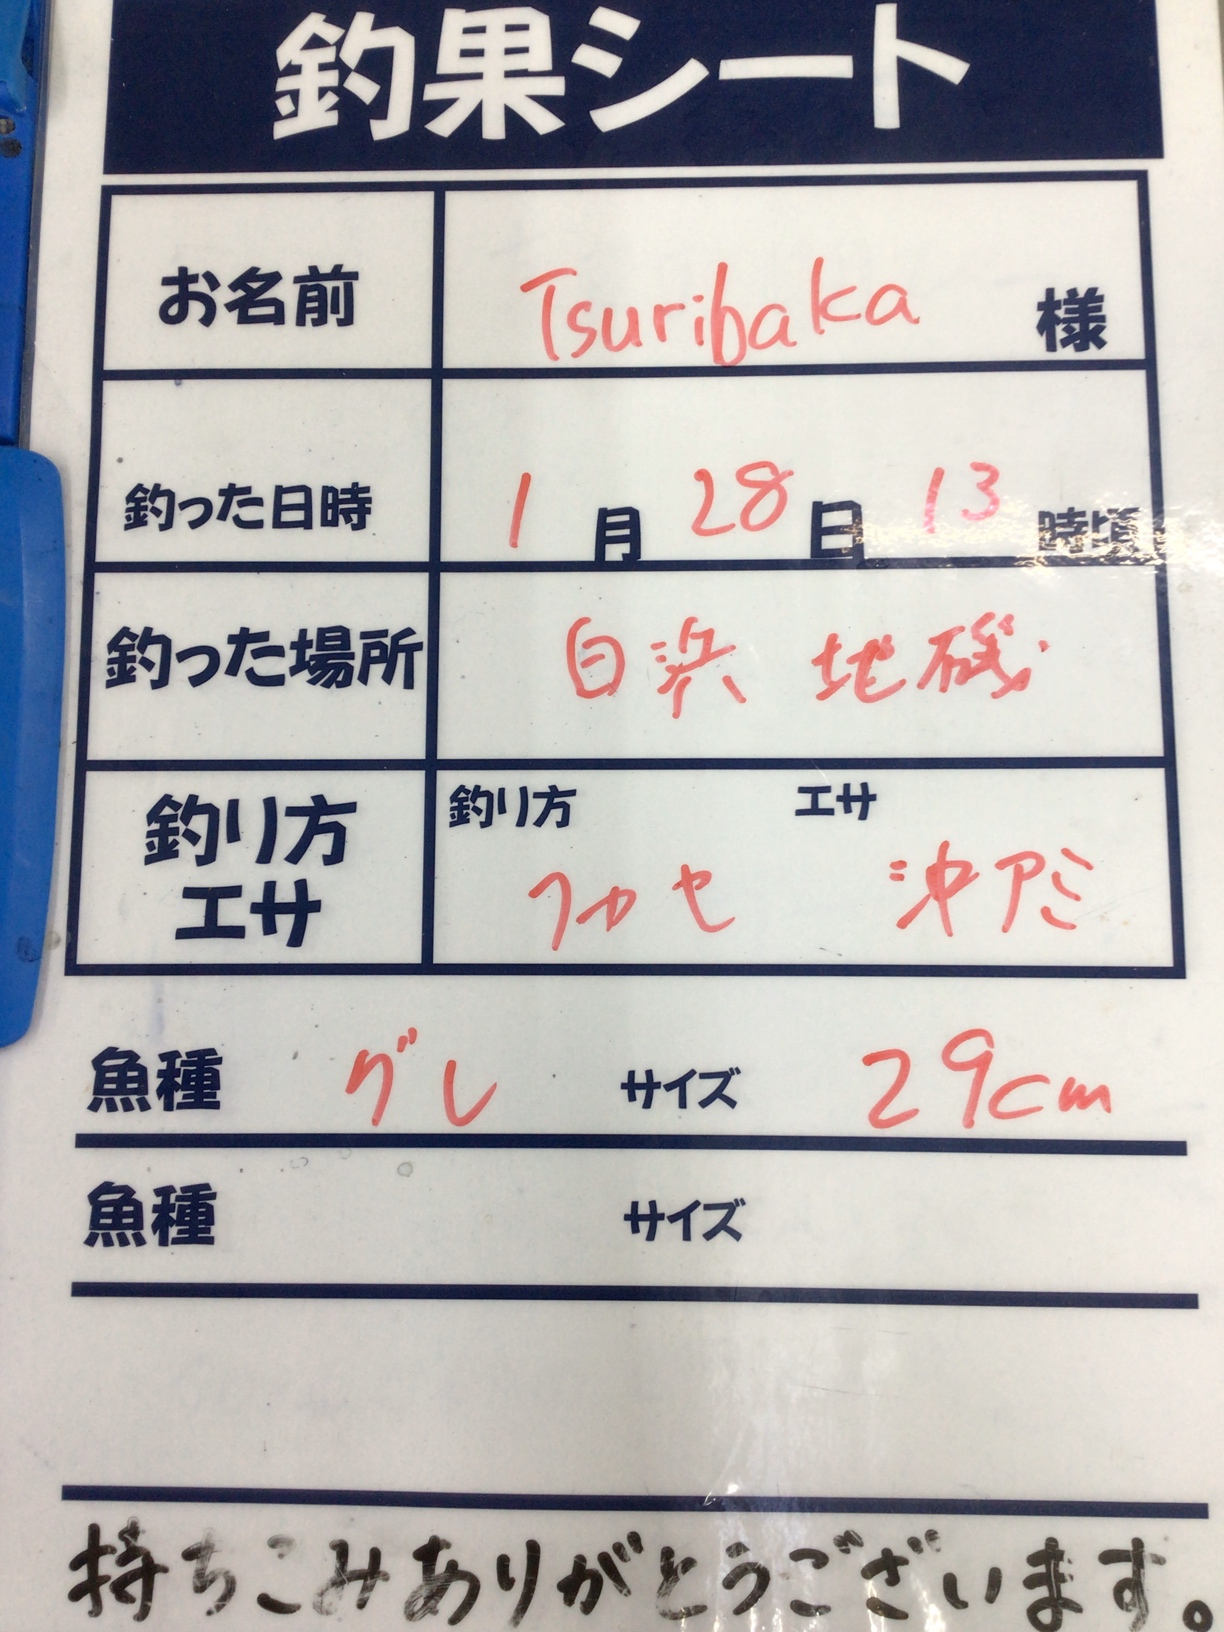 釣果シート
お名前 Tsuribaka 様
釣った日時 1月 28日 13時頃
釣った場所 白浜 地磯
釣り方 エサ
釣り方 フカセ エサ 沖アミ
魚種 グレ サイズ 29cm
魚種 サイズ
持ちこみありがとうございます。